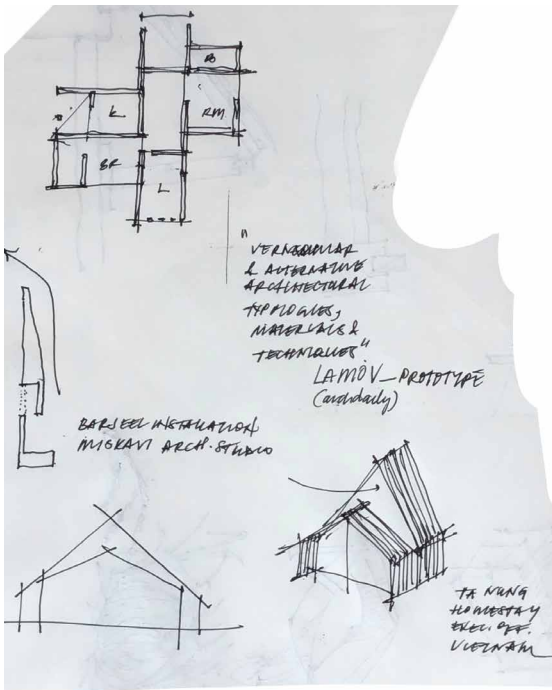 B
K
RM
BR
L
"
VERNACULAR
& ALTERNATIVE
ARCHITECTURAL
TYPOLOGIES,
MATERIALS &
TECHNIQUES"
LAMÓV_PROTOTYPE
(archdaily)
BARJEEL INSTALLATION
MISKAVI ARCH. STUDIO
TA NUNG
HOMESTAY
OFF.
VIETNAM